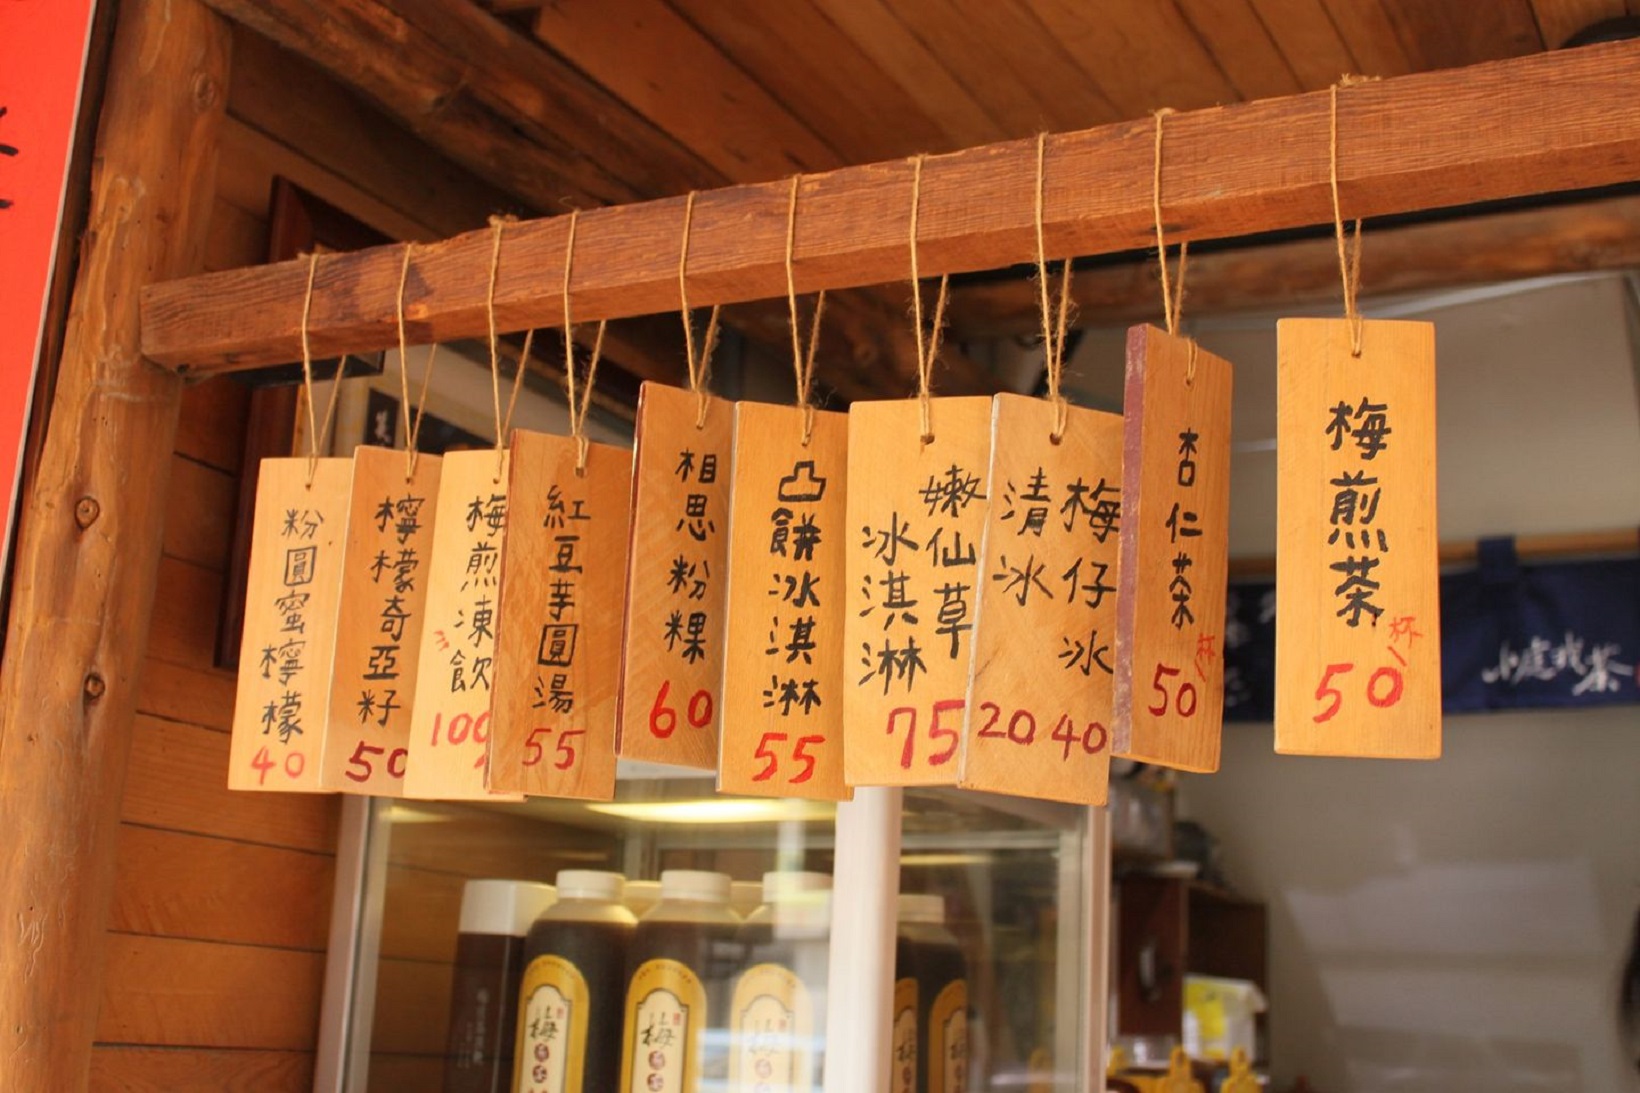 粉圓蜜檸檬
40
檸檬奇亞籽
50
梅煎凍飲
100
紅豆芋圓湯
55
相思粉粿
60
凸餅冰淇淋
55
嫩仙草
冰淇淋
75
梅仔冰
40
清冰
20
杏仁茶
50/杯
梅煎茶
50/杯
梅
梅
梅